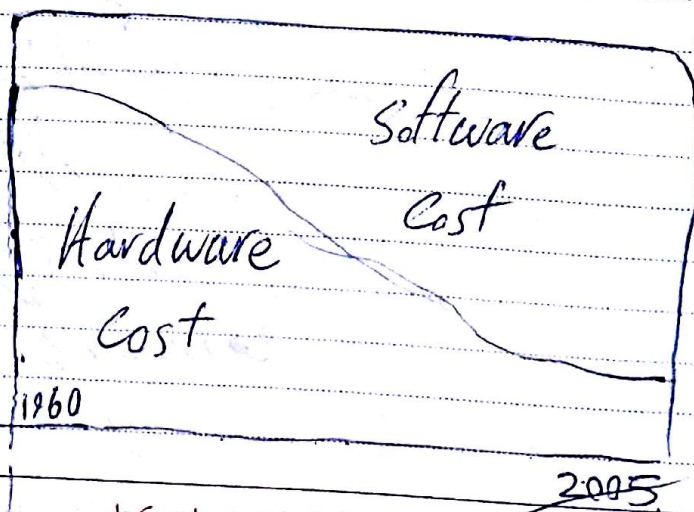 Software
Cost
Hardware
Cost
1960
2005